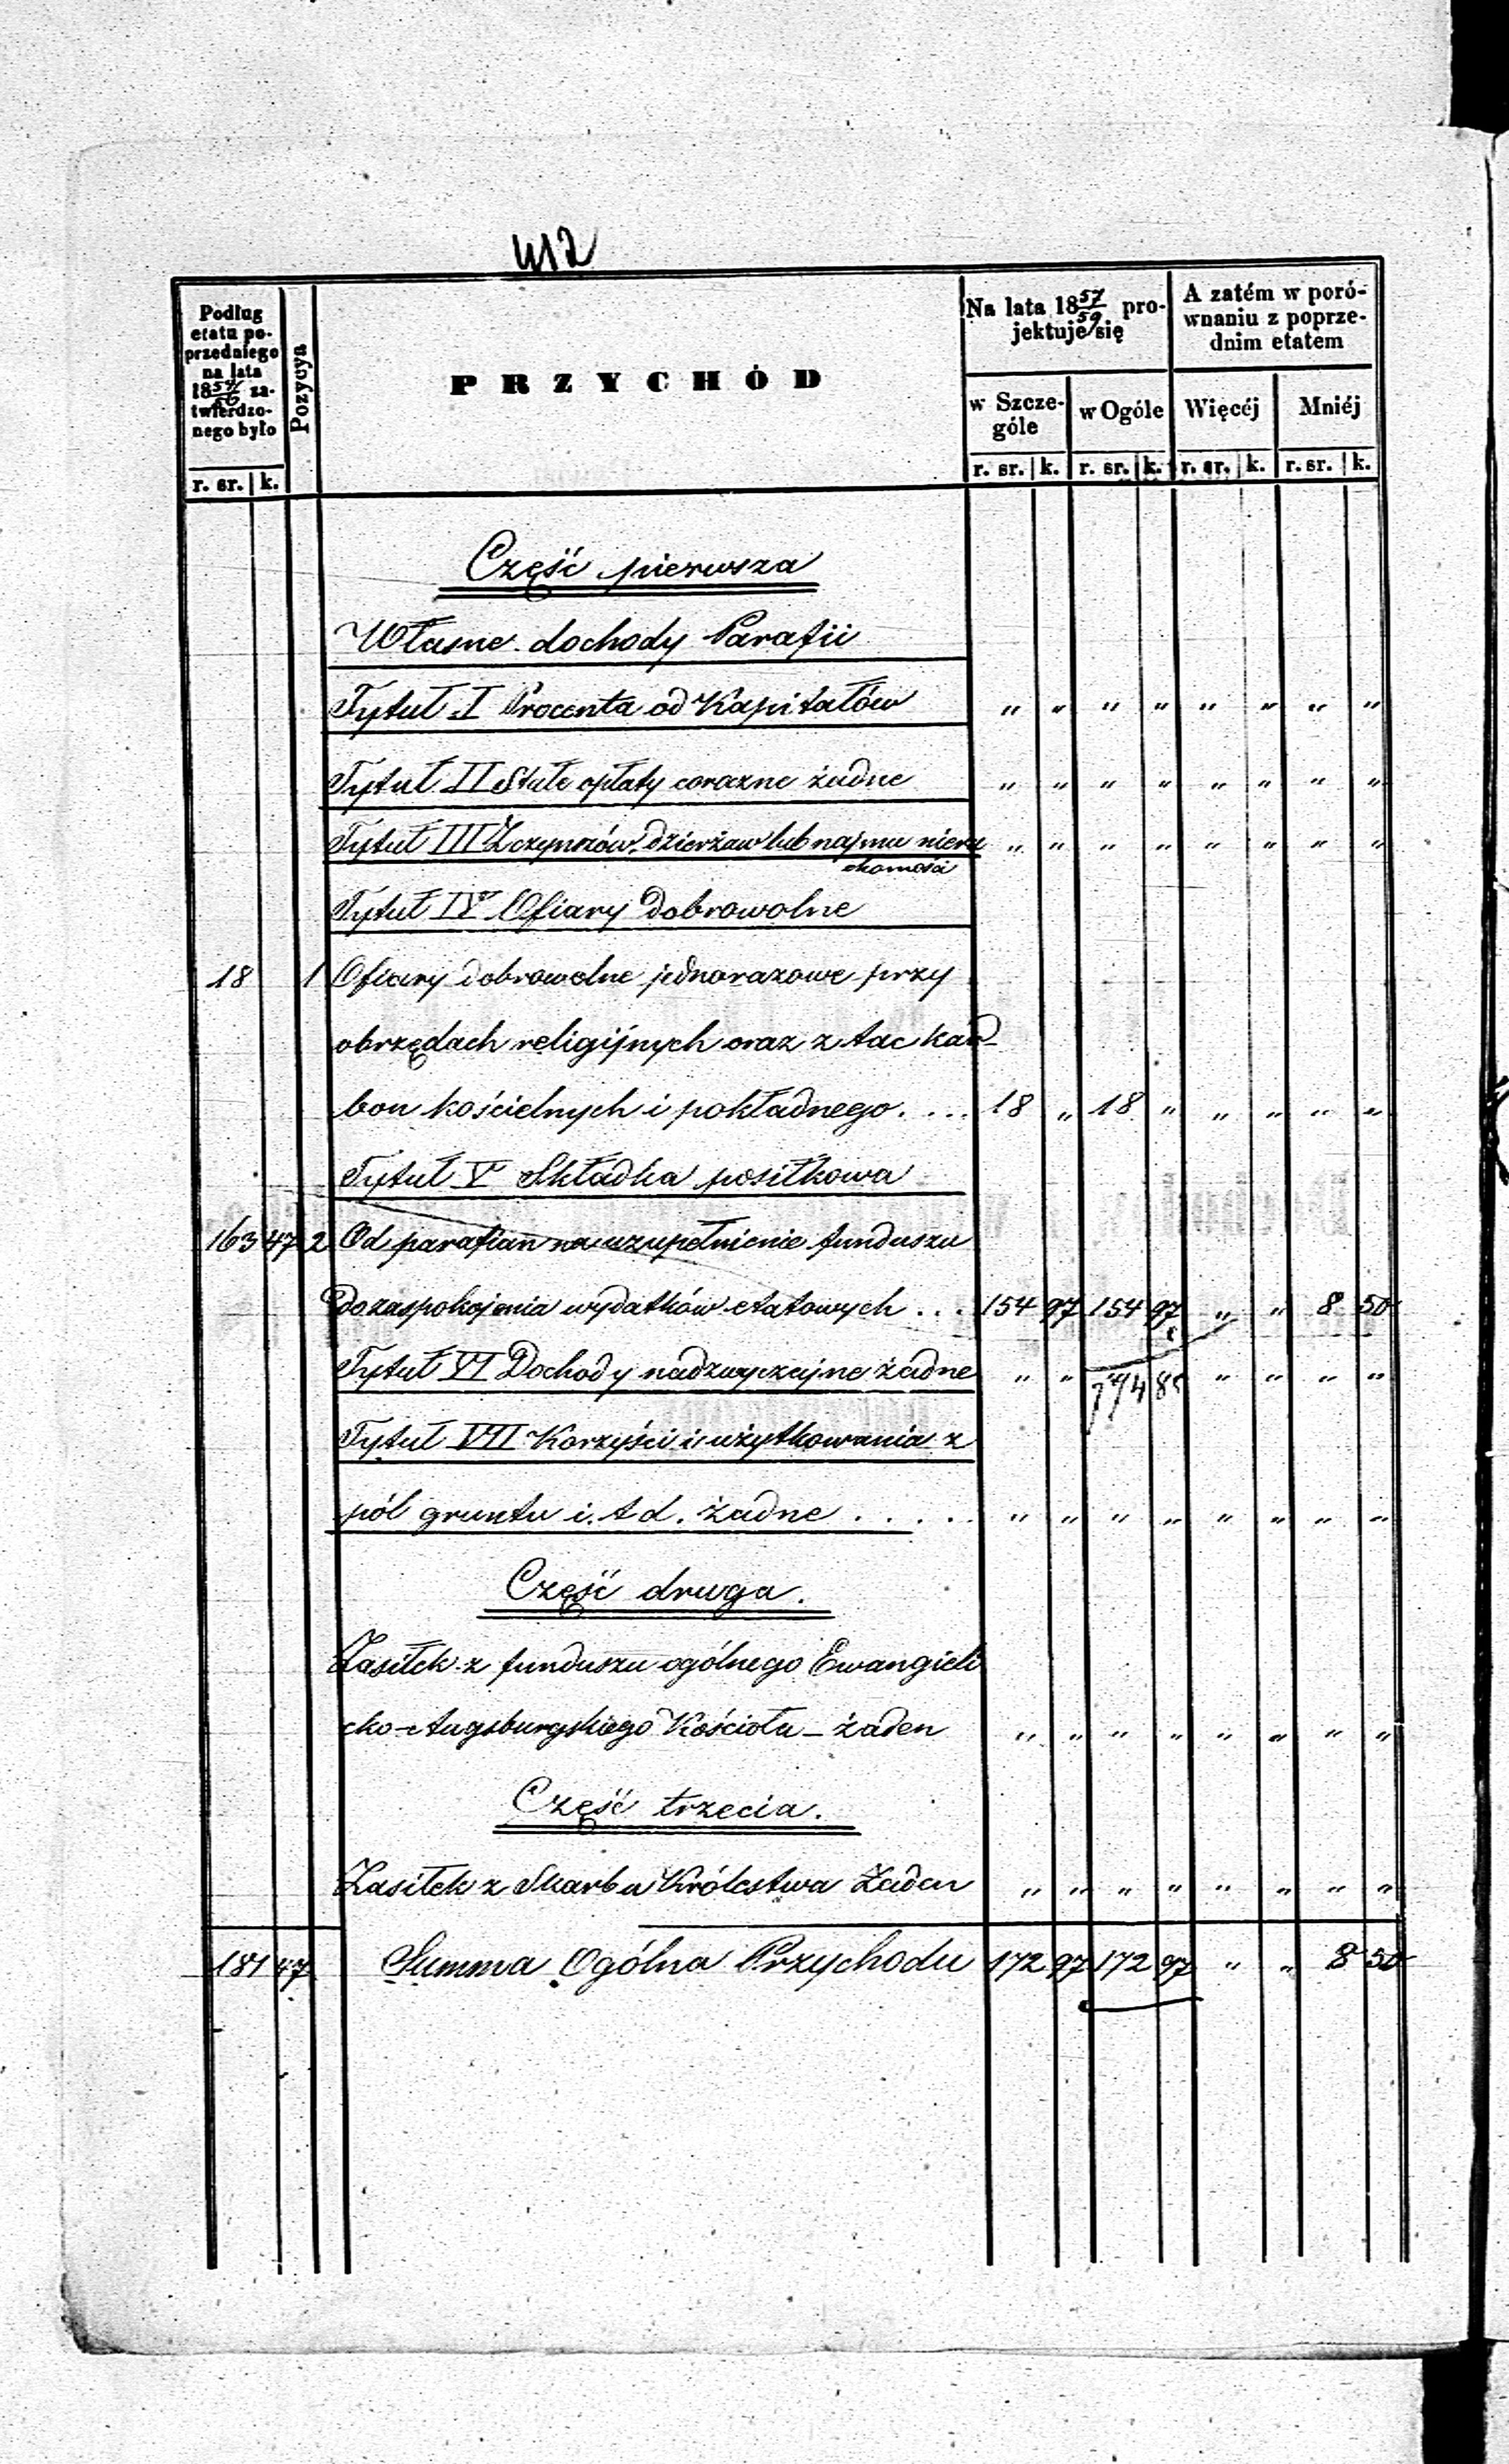 412
Podług etatu poprzedniego na lata 18 54/56 zatwierdzonego było
Pozycya
PRZYCHÓD
Na lata 18 57/59 projektuje się
A zatém w porównaniu z poprzednim etatem
w Szczególe w Ogóle Więcéj Mniéj
r. sr. k. r. sr. k. r. sr. k. r. sr. k. r. sr. k.
Część pierwsza
Własne dochody Parafii
Tytuł I Procenta od Kapitałów " " " " " " " "
Tytuł II Stałe opłaty coroczne żadne " " " " " " " "
Tytuł III Z czynszów dzierżaw lub najmu nieru " " " " " " " "
chomości
Tytuł IV Ofiary dobrowolne
18 1 Ofiary dobrowolne jednorazowe przy
obrzędach religijnych oraz z tac kar-
bon kościelnych i pokładnego. . . . 18 " 18 " " " " "
Tytuł V Składka posiłkowa
163 47 2 Od parafian na uzupełnienie funduszu
do zaspokojenia wydatków etatowych . . . 154 97 154 97 " " 8 50
Tytuł VI Dochody nadzwyczajne żadne " " " " " " " "
Tytuł VII Korzyści i użytkowania z
pól gruntu i. t d. żadne . . . . . " " " " " " " "
Część druga.
Zasiłek z funduszu ogólnego Ewangieli
cko-Augsburgskiego Kościoła – żaden " " " " " " " "
Część trzecia.
Zasiłek z Skarbu Królestwa Żaden " " " " " " " "
181 47 Summa Ogólna Przychodu 172 97 172 97 " " 8 50